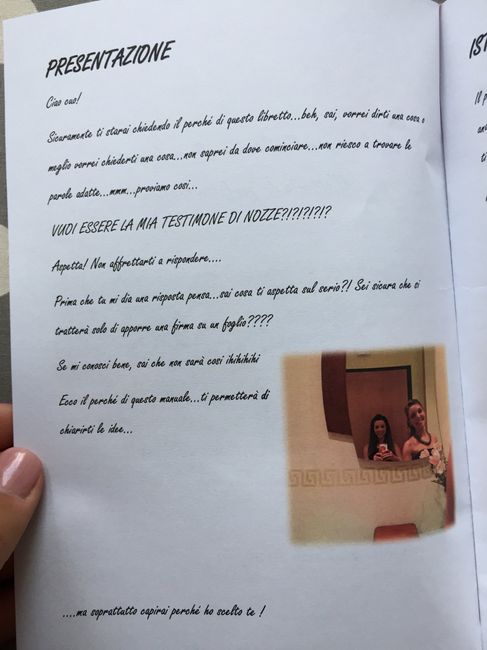 PRESENTAZIONE
Ciao cuo!
Sicuramente ti starai chiedendo il perché di questo libretto...beh, sai, vorrei dirti una cosa o
meglio vorrei chiederti una cosa...non saprei da dove cominciare...non riesco a trovare le
parole adatte...mmm...proviamo così...
VUOI ESSERE LA MIA TESTIMONE DI NOZZE?!?!?!?!?
Aspetta! Non affrettarti a rispondere....
Prima che tu mi dia una risposta pensa...sai cosa ti aspetta sul serio?! Sei sicura che si
tratterà solo di apporre una firma su un foglio????
Se mi conosci bene, sai che non sarà così ihihihihi
Ecco il perché di questo manuale...ti permetterà di
chiarirti le idee...
....ma soprattutto capirai perché ho scelto te !
IST
Il p